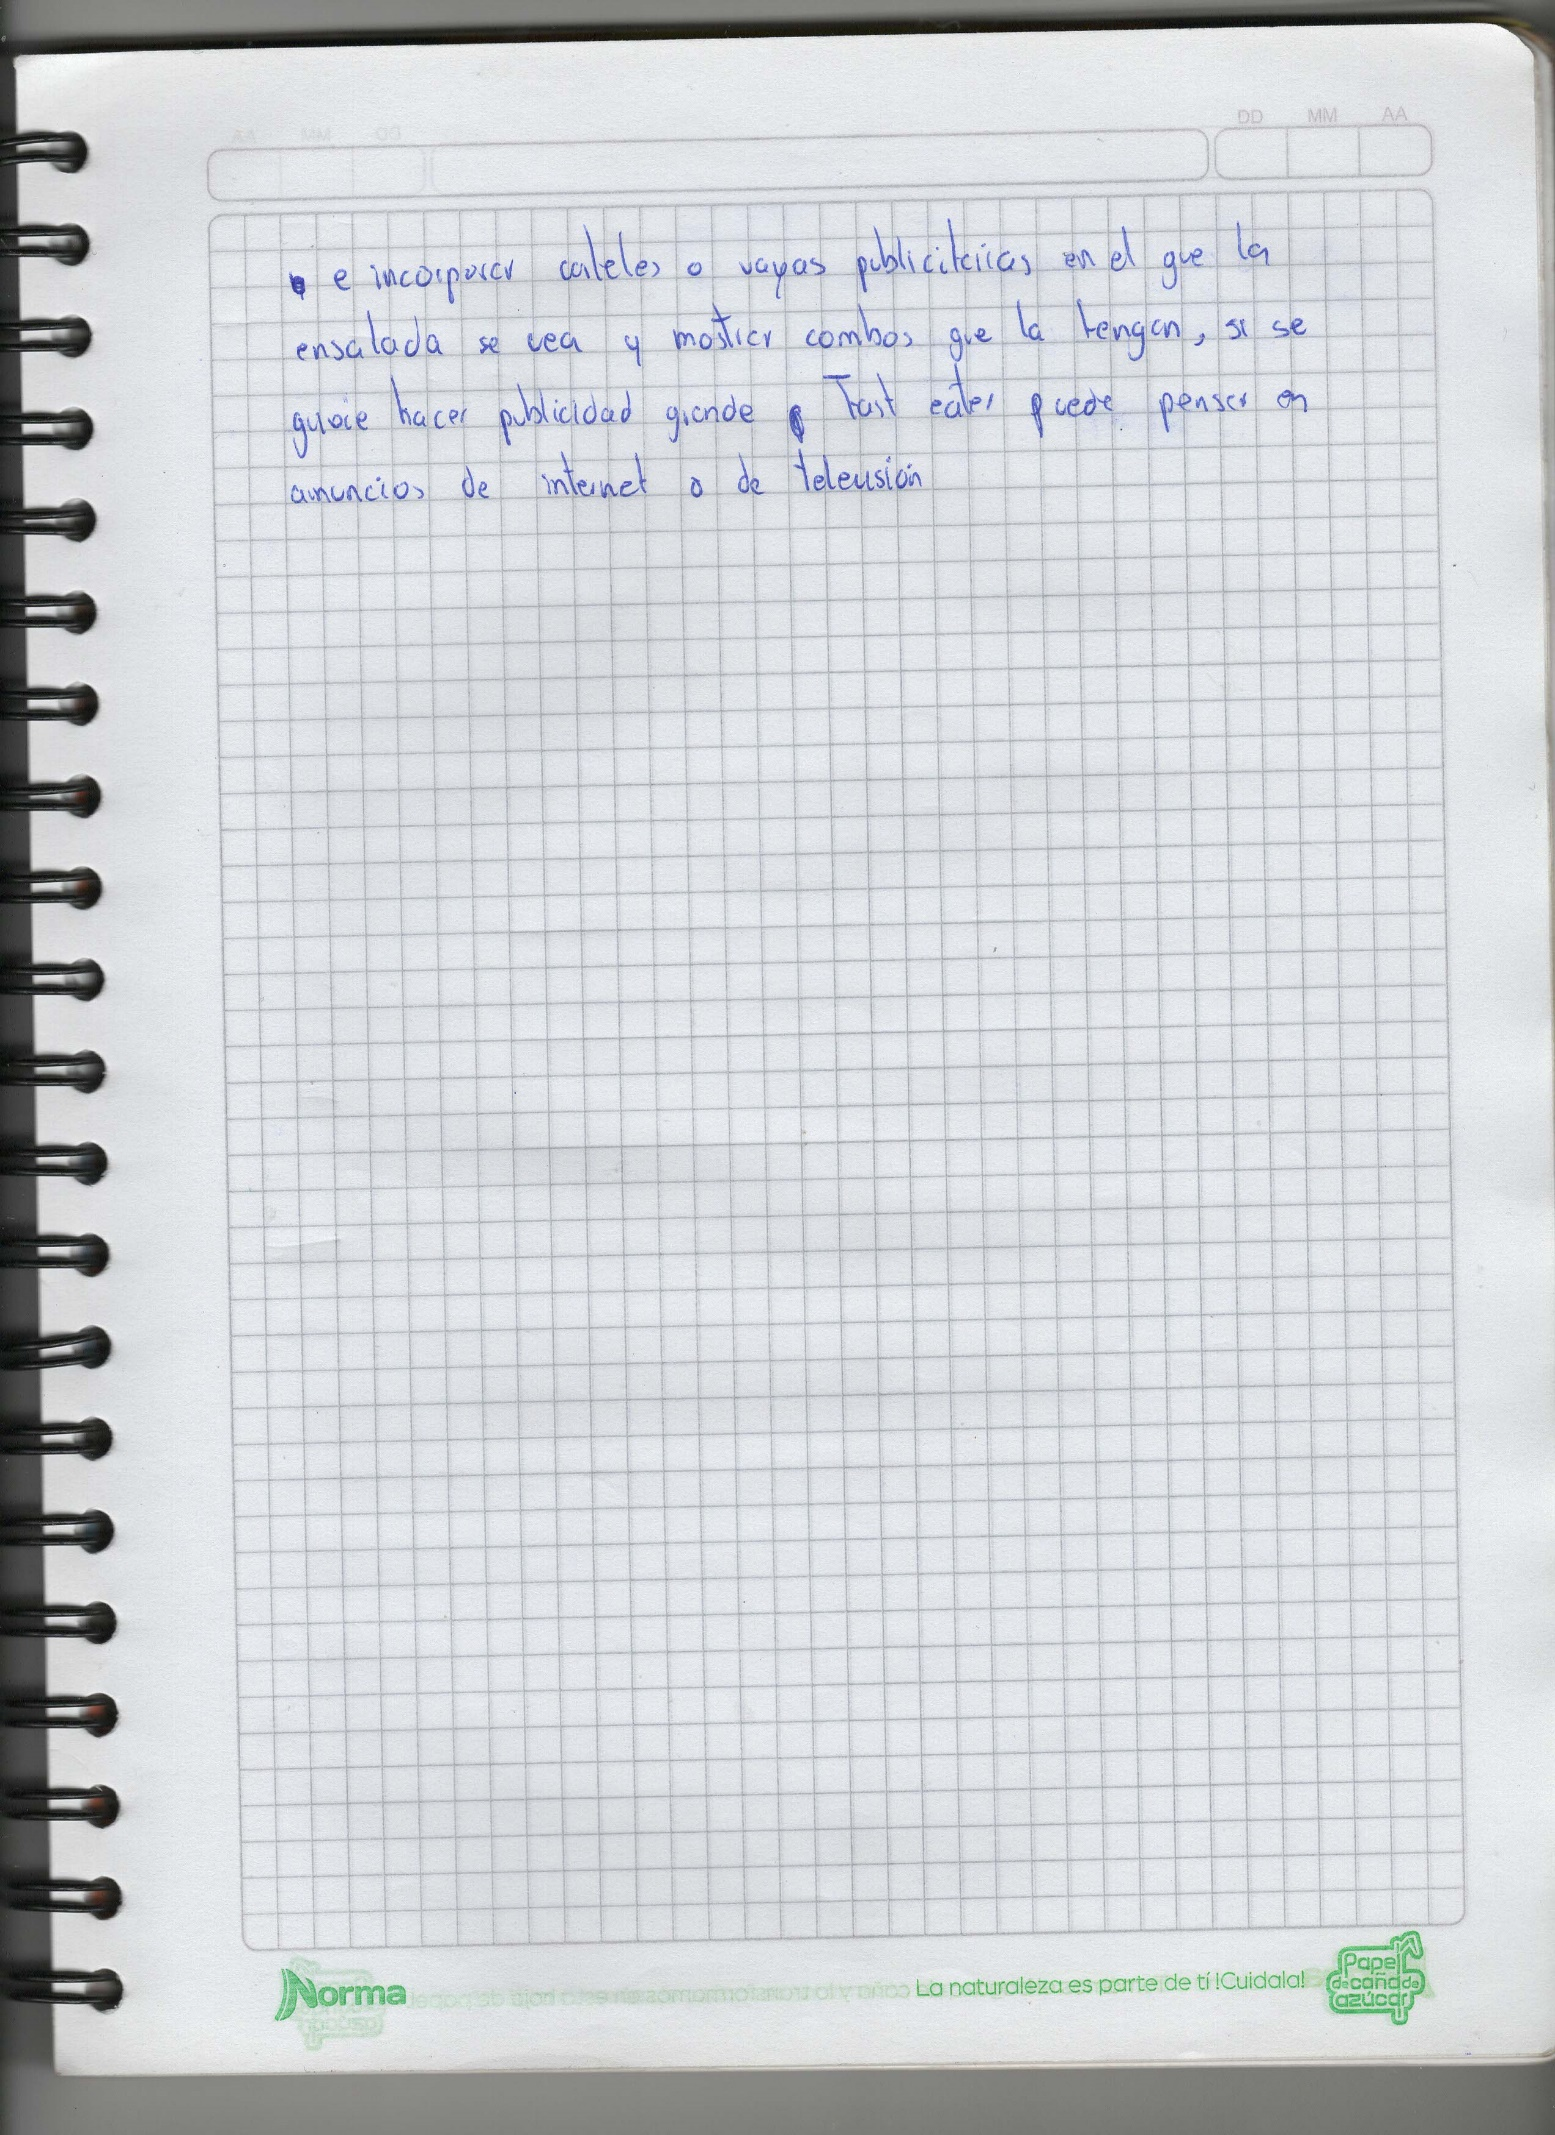 DD MM AA
e incorporar carteles o vayas publicitarias en el que la
ensalada se vea y mostrar combos que la tengan, si se
quiere hacer publicidad grande Fast eater puede pensar en
anuncios de internet o de television
Norma
La naturaleza es parte de tí !Cuidala!
Papel
de caña de
azúcar